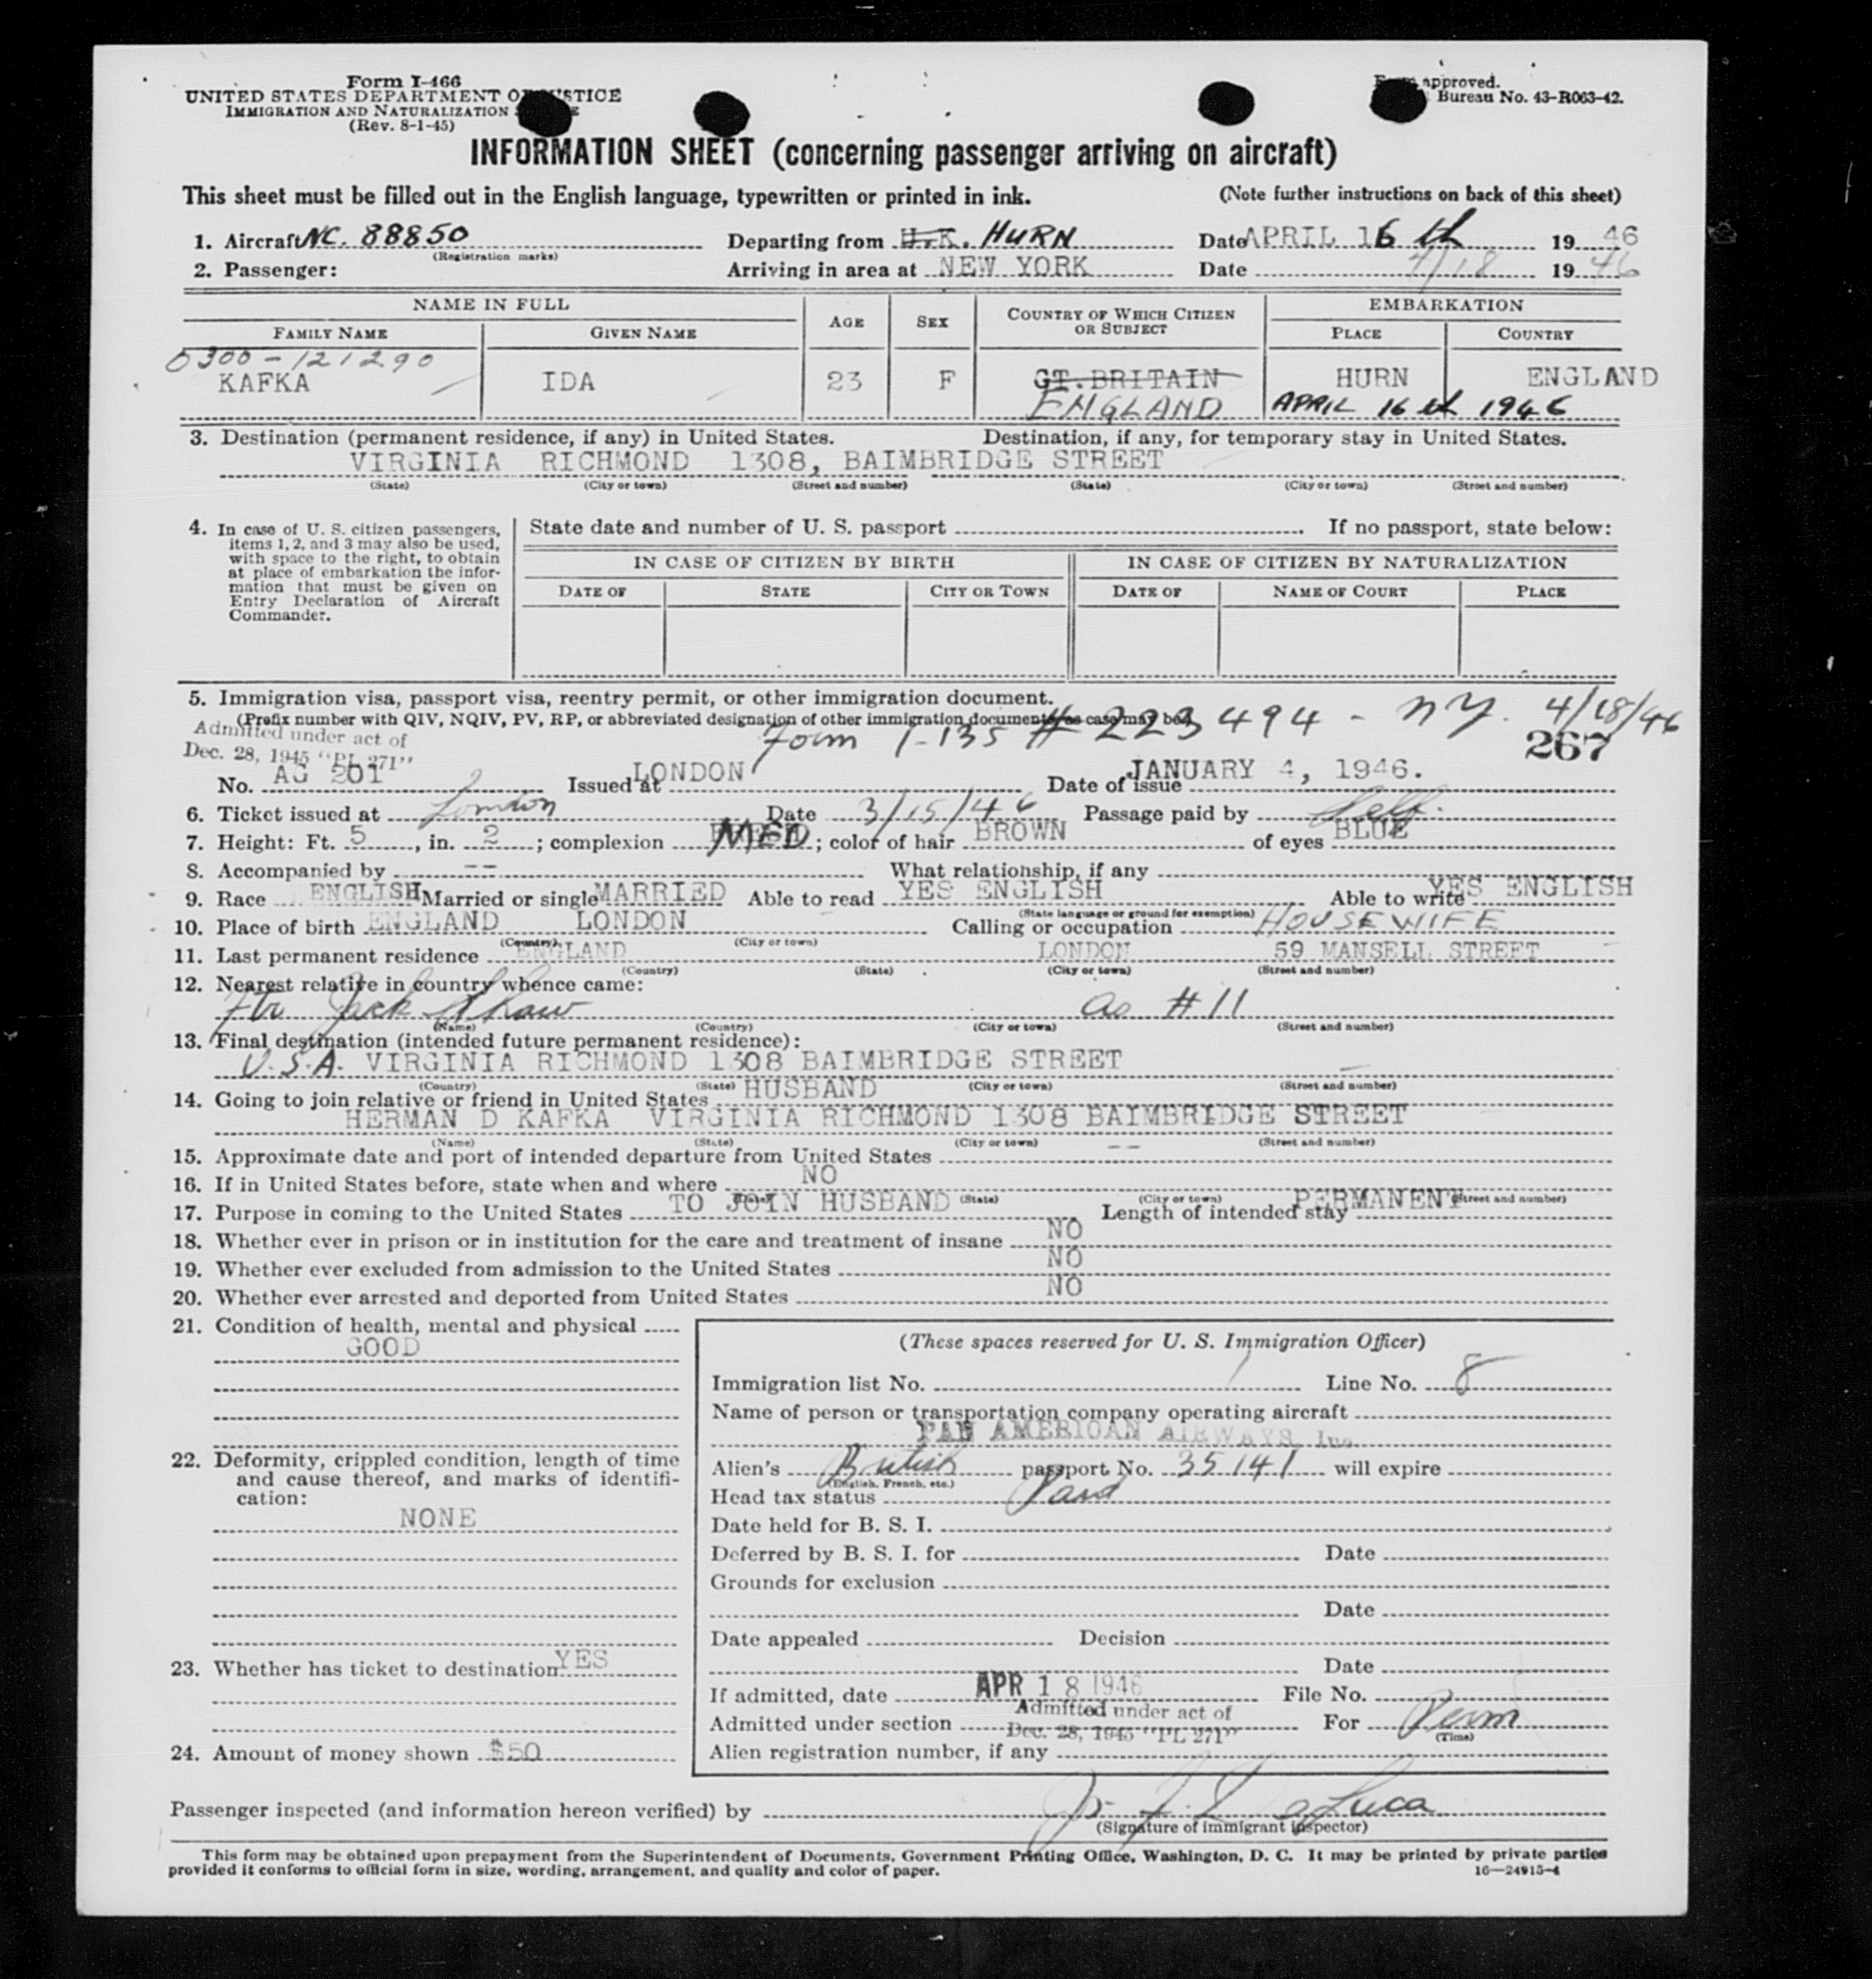 Form I-466
UNITED STATES DEPARTMENT OF JUSTICE
IMMIGRATION AND NATURALIZATION
(Rev. 8-1-45)
Form approved.
Bureau No. 43-R063-42.
INFORMATION SHEET (concerning passenger arriving on aircraft)
This sheet must be filled out in the English language, typewritten or printed in ink. (Note further instructions on back of this sheet)
1. Aircraft NC. 88850 Departing from U.K. HURN Date APRIL 16 th 1946
(Registration marks)
2. Passenger: Arriving in area at NEW YORK Date 4/18 1946
NAME IN FULL AGE SEX COUNTRY OF WHICH CITIZEN OR SUBJECT EMBARKATION
FAMILY NAME GIVEN NAME PLACE COUNTRY
0300-121290
KAFKA IDA 23 F GT.BRITAIN HURN ENGLAND
ENGLAND APRIL 16 th 1946
3. Destination (permanent residence, if any) in United States. Destination, if any, for temporary stay in United States.
VIRGINIA RICHMOND 1308, BAIMBRIDGE STREET
(State) (City or town) (Street and number) (State) (City or town) (Street and number)
4. In case of U. S. citizen passengers, items 1, 2, and 3 may also be used, with space to the right, to obtain at place of embarkation the information that must be given on Entry Declaration of Aircraft Commander.
State date and number of U. S. passport If no passport, state below:
IN CASE OF CITIZEN BY BIRTH IN CASE OF CITIZEN BY NATURALIZATION
DATE OF STATE CITY OR TOWN DATE OF NAME OF COURT PLACE
5. Immigration visa, passport visa, reentry permit, or other immigration document.
(Prefix number with QIV, NQIV, PV, RP, or abbreviated designation of other immigration document, as case may be)
Form I-135 # 223494 - NY. 4/18/46
267
Admitted under act of
Dec. 28, 1945 "PL 271"
No. AG 201 Issued at LONDON Date of issue JANUARY 4, 1946.
6. Ticket issued at London Date 3/15/46 Passage paid by Self.
7. Height: Ft. 5, in. 2; complexion MED; color of hair BROWN of eyes BLUE
8. Accompanied by -- What relationship, if any
9. Race ENGLISH Married or single MARRIED Able to read YES ENGLISH Able to write YES ENGLISH
(State language or ground for exemption)
10. Place of birth ENGLAND LONDON Calling or occupation HOUSEWIFE
(Country) (City or town)
11. Last permanent residence ENGLAND LONDON 59 MANSELL STREET
(Country) (State) (City or town) (Street and number)
12. Nearest relative in country whence came:
Ftr Jack Shaw as #11
(Name) (Country) (City or town) (Street and number)
13. Final destination (intended future permanent residence):
U.S.A. VIRGINIA RICHMOND 1308 BAIMBRIDGE STREET
(Country) (State) (City or town) (Street and number)
14. Going to join relative or friend in United States HUSBAND
HERMAN D KAFKA VIRGINIA RICHMOND 1308 BAIMBRIDGE STREET
(Name) (State) (City or town) (Street and number)
15. Approximate date and port of intended departure from United States --
16. If in United States before, state when and where NO
(State) (City or town) (Street and number)
17. Purpose in coming to the United States TO JOIN HUSBAND Length of intended stay PERMANENT
18. Whether ever in prison or in institution for the care and treatment of insane NO
19. Whether ever excluded from admission to the United States NO
20. Whether ever arrested and deported from United States NO
21. Condition of health, mental and physical
GOOD
22. Deformity, crippled condition, length of time
and cause thereof, and marks of identifi-
cation:
NONE
23. Whether has ticket to destination YES
24. Amount of money shown $50
(These spaces reserved for U. S. Immigration Officer)
Immigration list No. 1 Line No. 8
Name of person or transportation company operating aircraft
PAN AMERICAN AIRWAYS, Inc.
Alien's British passport No. 35141 will expire
(English, French, etc.)
Head tax status Paid
Date held for B. S. I.
Deferred by B. S. I. for Date
Grounds for exclusion
Date
Date appealed Decision
Date
If admitted, date APR 18 1946 File No.
Admitted under section Admitted under act of Dec. 28, 1945 "PL 271" For Perm
(Time)
Alien registration number, if any
Passenger inspected (and information hereon verified) by
(Signature of immigrant inspector)
This form may be obtained upon prepayment from the Superintendent of Documents, Government Printing Office, Washington, D. C. It may be printed by private parties
provided it conforms to official form in size, wording, arrangement, and quality and color of paper. 16—24915-4